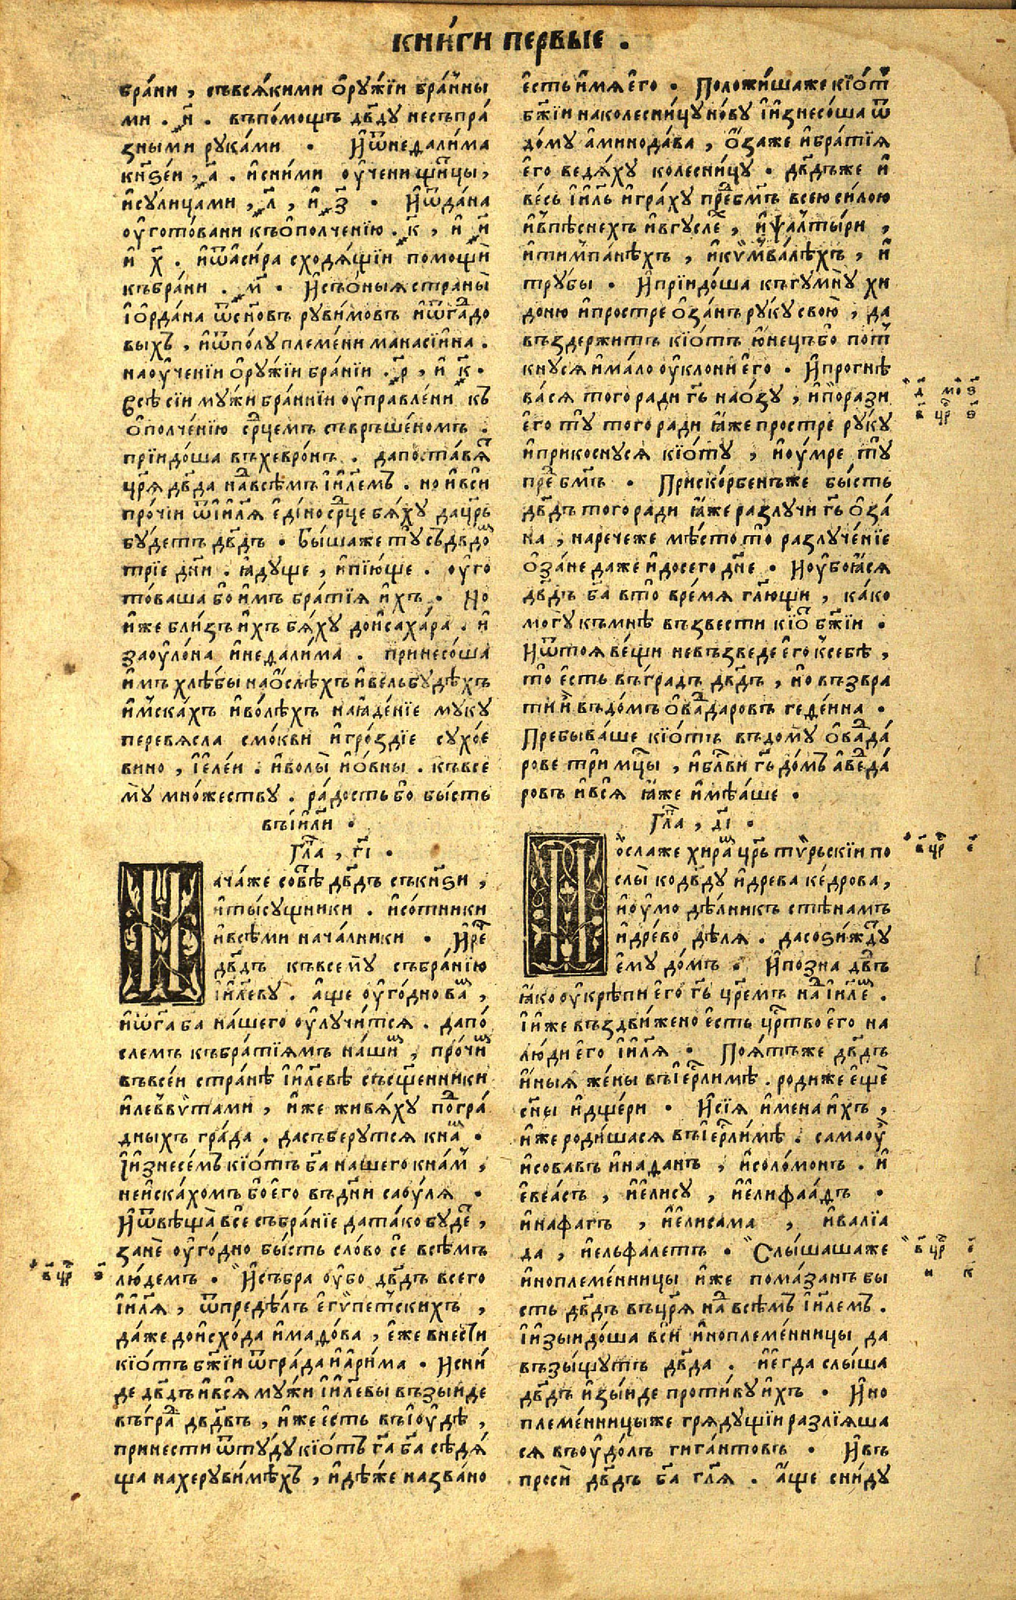 книги первые .
брани , съвсякими ѻружїи бранны
ми . н҃ . въпомощъ дв҃ду несъпра
зными руками · Иѿнедалима
кнѕеи , а҃ . исними ѹчени щи́цы,
исулицами , л҃ , и з҃ · Иѿдана
ѹготовани къополченїю . к҃ , и и҃
и х҃ . иѿасира сходящїи помощи
къбрани . м҃ · Исъоныя страны
їордана ѿсн҃овъ рувимовъ иѿгадо
выхъ , иѿполу племени манасіина .
наѹченїи ѻружїи бранїи . р҃ , и к҃ ·
Всѣ сїи мужи браннїи ѹправлени къ
ополченїю ср҃цемъ съвръшеномъ .
прїидоша въхевронъ . дапоставя
цр҃я дв҃да навсѣмъ їи҃лемъ . но ивси
прочїи ѿїи҃ля едино ср҃це бяху дацр҃ь
будетъ дв҃дъ · Бышаже ту съдв҃до
трїе дн҃и . ꙗдуще , ипїюще . ѹго
товаша бо имъ братїя ихъ · Но
иже близъ ихъ бяху доисахара . и
заѹлона инедалима . принесоша
имъ хлѣбы наослѣхъ ивельбудѣхъ
имскахъ иволѣхъ наꙗденїе муку
перевясла смокви игроздїе сухое
вино , їелеи . иволы иовны . къвсе
му множеству . радость бо бысть
въїи҃ли ·
Гла҃ , г҃і ·
Начаже совѣ дв҃дъ съкнѕи ,
итысущники . исотники
ивсѣми началники · Ире
дв҃дъ къвсему събранїю
їи҃леву . аще ѹгодно ва ,
иѿга ба нашего ѹлучится . дапо
слемъ къбратїямъ наши , прочи
въвсеи странѣ їи҃левѣ съсщ҃енники
илеввѵтами , иже живяху погра
дныхъ града . дасъберутся кна ·
Їизнесемъ кїотъ ба нашего кнам ,
неискахомъ бо его въдни саоуля ·
Иѿвѣща все събранїе датако буде ,
зане ѹгодно бысть слово се всѣмъ
людемъ · Исъбра ѹбо дв҃дъ всего
їи҃ля , ѿпределъ егѵпетскихъ ,
даже доисхода имадова , еже внести
кїотъ бж҃їи ѿграда иарима · Исни
де дв҃дъ ився мужи їи҃левы възыиде
въгра дв҃двъ , иже есть въїюдѣ ,
принести ѿтуду кїотъ га҃ ба҃ сѣдя
ща нахерувимѣхъ , идѣже названо
есть имя его · Положишаже кїот
бж҃їи наколесницу нову иизнесоша ѿ
дому аминодава , ѻзаже ибратїя
его ведяху колесницу · дв҃дъже и
весь їи҃ль играху пре бг҃мъ всею силою
ивпѣснехъ ивгусле , иѱалтыри ,
итимпанѣхъ , икѵмвалѣхъ , и
трубы · Ипрїидоша къгумну хи
дону ипростре ѻзанъ руку свою , да
въздержитъ кїотъ юнецъ бо пот
кнуся имало ѹклони его · Ипрогнѣ
вася того ради гь҃ наѻзу , ипорази
его ту того ради ꙗже простре руку
иприкоснуся кїоту , иѹмре ту
пре бг҃мъ · Прискорбенъже бысть
дв҃дъ того ради ꙗже разлучи гь҃ ѻза
на , наречеже мѣсто то разлученїе
ѻзане даже идосего дн҃е · Иѹбоꙗся
дв҃дъ ба҃ вто время гл҃ющи , како
могу къмнѣ възвести кїо бж҃їи ·
Иѿтоя вещи невъзведе его ксебѣ ,
то есть въградъ дв҃дъ , но възвра
ти и въдомъ ѻвадаровъ геденна ·
Пребываше кїотъ въдому ѻведа
рове три мц҃ы , ибл҃ви гь҃ домъ аведа
ровъ ився ꙗже имѣаше ·
Гла҃ , д҃і ·
Послаже хира цр҃ь тѵрьскїи по
слы кодв҃ду идрева кедрова ,
иѹмо дѣлникъ стѣнамъ
идрево дѣля . дасоѕижду
ему домъ · Ипозна дв҃дъ
ꙗко ѹкрѣпи его гь҃ цр҃емъ на їи҃ле ·
Їиже въздвижено есть цр҃тво его на
люди его їи҃ля · Поятъже дв҃дъ
иныя жены въїер҃лимѣ . родиже еще
сн҃ы идщери · Исїя имена ихъ ,
иже родишася въїер҃лимѣ . самаѹ
исовавъ инаданъ , исоломонъ . и
евеасъ , иелису , иелифаадъ ·
инафагъ , иелисама , ивалїа
да , иельфалетъ · Слышашаже
иноплеменницы иже помазанъ бы
сть дв҃дъ въцр҃я на всѣмъ їи҃лемъ .
Їизыидоша вси иноплеменницы да
възыщутъ дв҃да . иегда слыша
дв҃дъ изыиде противу ихъ · Ино
племенницыже грядущїи разлїяша
ся въѹдолъ гигантовъ · Ивъ
проси дв҃дъ ба҃ гл҃я . аще сниду